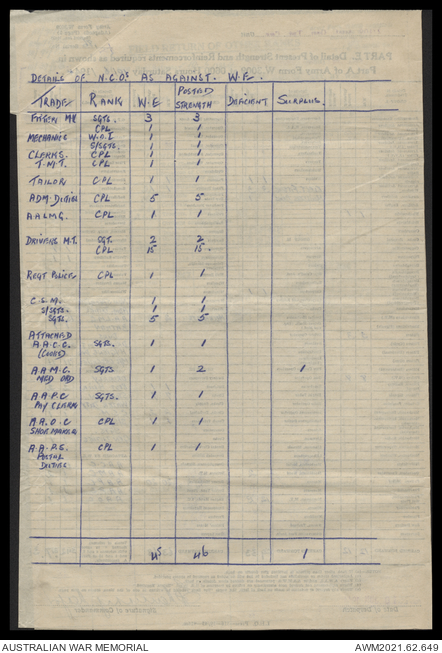 DETAILS OF N.C.Os AS AGAINST. W.E.
TRADE RANK W.E POSTED STRENGTH DEFICIENT SURPLUS.
SGTS. 3 3
CPL 1 1
MECHANIC W.O.I 1 1
S/SGTS. 1 1
CLERKS. CPL 1 1
CPL 1 1
TAILOR CPL 1 1
ADM. DUTIES CPL 5 5
AALMG. CPL 1 1
DRIVERS M.T. SGT. 2 2
CPL 15 15.
REGT POLICE CPL 1 1
C.S.M. 1 1
S/SGTS. 1 1
SGTS. 5 5
ATTACHED
A.A.C.C. SGTS. 1 1
(COOKS)
A.A.M.C. SGTS 1 2 1
MED ORD
A.A.P.C SGTS. 1 1
PAY CLERK
A.A.O.C CPL 1 1
SHOE MAKER
A.A.P.S. CPL 1 1
POSTAL
DUTIES
45 46 1
AUSTRALIAN WAR MEMORIAL AWM2021.62.649